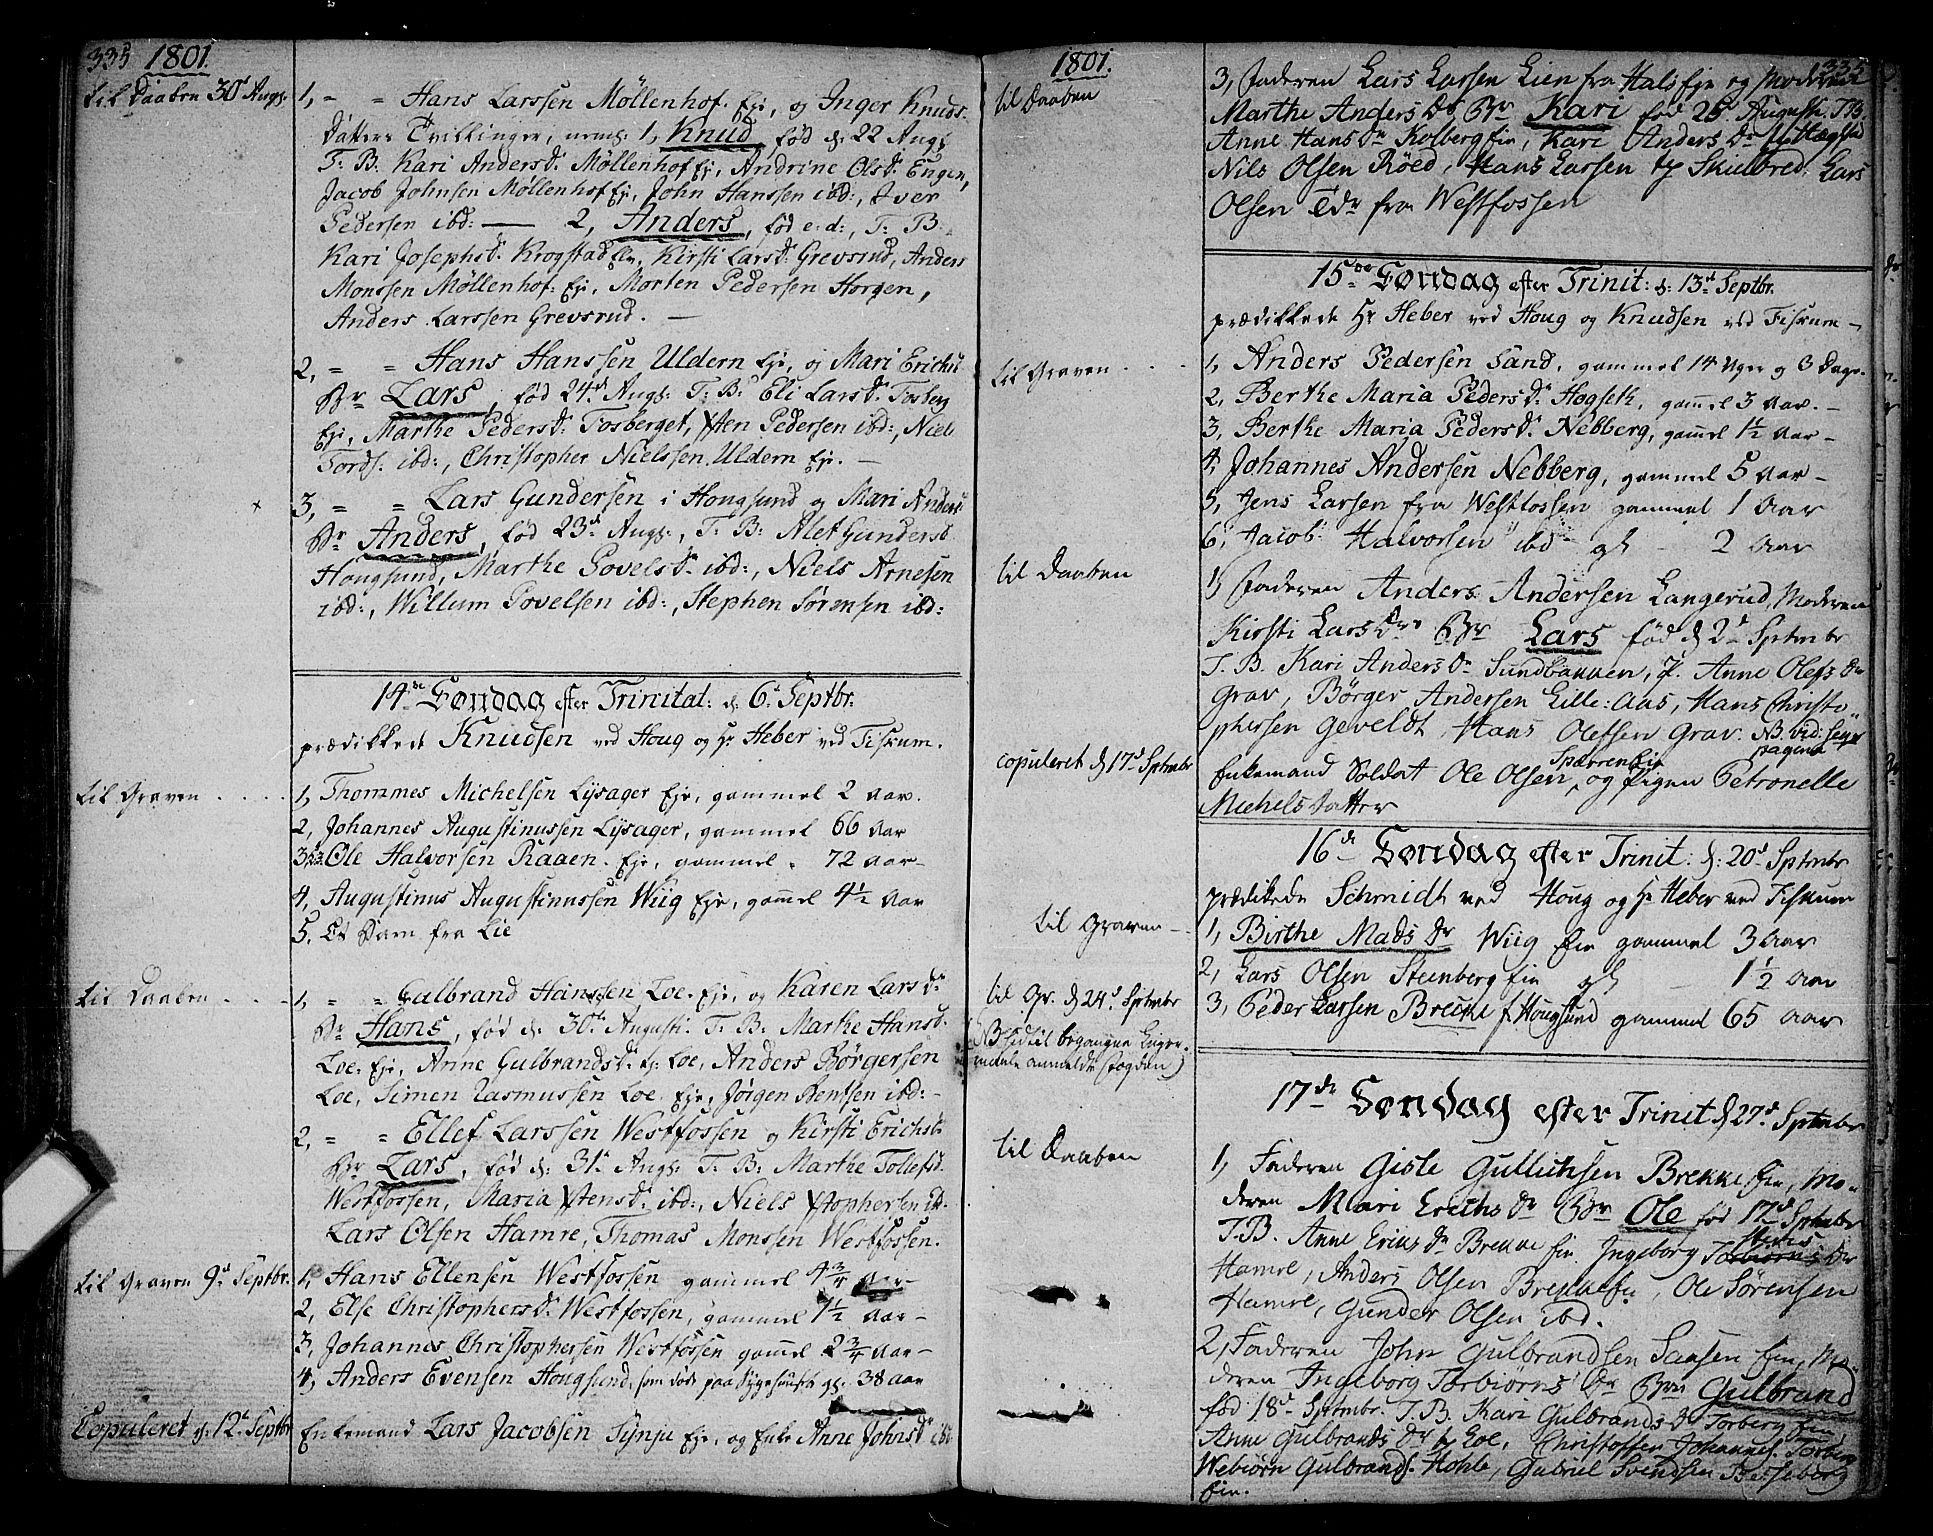 335 1801.
til Daaben 30t Augs.
1, = = Hans Larssen Möllenhof. Eje, og Inger Knuds-
Datters Tvillinger, neml: 1, Knud, fød d: 22 Augs:
T: B. Kari Andersd: Möllenhof Eje, Andrine Olsd: Engen,
Jacob Johnsen Möllenhof Eje, John Hanssen ibd:, Iver
Pedersen ibd: — 2, Anders, fød e: d:, T: B.
Kari Josephsd: Krogstad Elv, Kirsti Larsd: Grevsrud, Anders
Monssen Möllenhof: Eje, Morten Pedersen Horgen,
Anders Larssen Grevsrud. —
2, = = Hans Hanssen Uldern Eje, og Mari Erichsd:
Br Lars, fød 24d Augs: T: B: Eli Larsd: Fosberg
Eje, Marthe Pedersd: Fosberget, Sten Pedersen ibd:, Niels
Tords: ibd:, Christopher Nielssen Uldern Eje. —
3, = = Lars Gundersen i Hougsund og Mari Anders
Br Anders, fød 23d Augs:, T: B: Alet Gundersd
Hougsund, Marthe Povelsd: ibd:, Niels Arnesen
ibd:, Willum Povelsen ibd:, Stephen Sörensen ibd:
14de Søndag efter Trinitat: d: 6t Septbr:
prædikkede Knudsen ved Houg og Hr Heber ved Fiskum.
til Graven . . . . .
1, Thommes Michelsen Lysager Eje, gammel 2 Aar.
2, Johannes Augustinussen Lysager, gammel 66 Aar
3, Ole Halvorsen Raaen. Eje, gammel . 72 Aar—
4, Augustinus Augustinussen Wiig Eje, gammel 4 1/2 Aar
5. Et Barn fra Lie
til Daaben . . . .
1, = = Gulbrand Hanssen Loe. Eje, og Karen Larsdr
Br Hans, fød d: 30d Augusti. T: B. Marthe Hansd.
Loe. Eje, Anne Gulbrandsd: Loe, Anders Börgersen
Loe, Simen Rasmussen Loe Eje, Jörgen Bentsen ibd:—
2, = = Ellef Larssen Westfossen og Kirsti Erichsd:
Br Lars, fød d: 31d Augs: T: B: Marthe Tollefsd.
Westfossen, Maria Stensd: ibd:, Niels Stophersen ib.
Lars Olsen Hamre, Thomas Monssen Westfossen.
til Graven 9d Septbr.
1, Hans Ellensen Westfossen gammel 4 3/4 Aar—
2, Else Christophersd: Westfossen, gammel 1 1/2 Aar—
3, Johannes Christophersen Westfossen gammel 2 3/4 Aar—
4, Anders Evensen Hougsund, som døde paa Sygehuuset gl: 38 aar
Copuleret d: 12t Septbr.
Enkemand Lars Jacobsen Synju Eje, og Enke Anne Johnsd
1801. 335
til Daaben
3, Faderen Lars Larsen Lien fra Hals Eje og Moderen
Marthe Anders Dr Br Kari fød 26 Augusti T.B.
Anne Hans Dr Kolberg Eie, Kari Anders Dr
Nils Olsen Röed, Hans Larsen Skulbred, Lars
Olsen Tdr fra Westfossen
15de Søndag efter Trinit: d: 13d Septbr.
prædikkede Hr Heber ved Houg og Knudsen ved Fiskum—
til Graven . . . .
1, Anders Pedersen Sand, gammel 14 Uger og 3 Dage.
2, Berthe Maria Peders Dr Hogseth, gammel 3 Aar. —
3, Berthe Maria Peders Dr Nebberg, gammel 1 1/2 Aar—
4, Johannes Andersen Nebberg, gammel 5 Aar—
5, Jens Larsen fra Westfossen gammel 1 Aar
6, Jacob Halvorsen ibd — gl — 2 Aar
til Daaben
1, Faderen Anders Andersen Langerud, Moderen
Kirsti Lars Dr Br Lars fød d 2d Sptmbr
T. B. Kari Anders Dr Sundbakken, Anne Olefs Dr
Grav, Börger Andersen Lille: Aas, Hans Christo
phersen Geveldt, Hans Olefsen Grav. NB vid: seqv
pagina
copuleret d 17d Sptmbr
Enkemand Soldat Ole Olsen Sparren Eie, og Pigen Petronelle
Michels Datter
16de Søndag efter Trinit: d: 20d Sptmbr
prædikede Schmidt ved Houg og Hr Heber ved Fiskum
til Graven —
1, Birthe Mads Dr Wiig Eie gammel 3 Aar
2, Lars Olsen Steenberg Eie gl — 1 1/2 Aar
til Gr. d 24d Sptmbr
3, Peder Larsen Brecke f Hougsund gammel 65 Aar
17de Søndag efter Trinit d 27d Sptmbr
til Daaben
1, Faderen Gisle Gullichsen Brekke Eie, Mo-
deren Mari Erichs Dr Br Ole fød 17d Sptmbr
T.B. Anne Erics Dr Brekke Eie Ingeborg Torbiörns Dr
Hamre, Anders Olsen Brekke Eie, Ole Sörensen
Hamre, Gunder Olsen ibd.
2, Faderen John Gulbrandsen Saasen Eie, Mo-
deren Ingeborg Torbiörns Dr Brn Gulbrand
fød 18d Sptmbr. T. B. Kari Gulbrands Dr Torberg Eie
Anne Gulbrands Dr Loe, Christoffer Johannes. Torberg
Webiörn Gulbrands. Hohle, Gabriel Svendsen Besseberg
Eie.